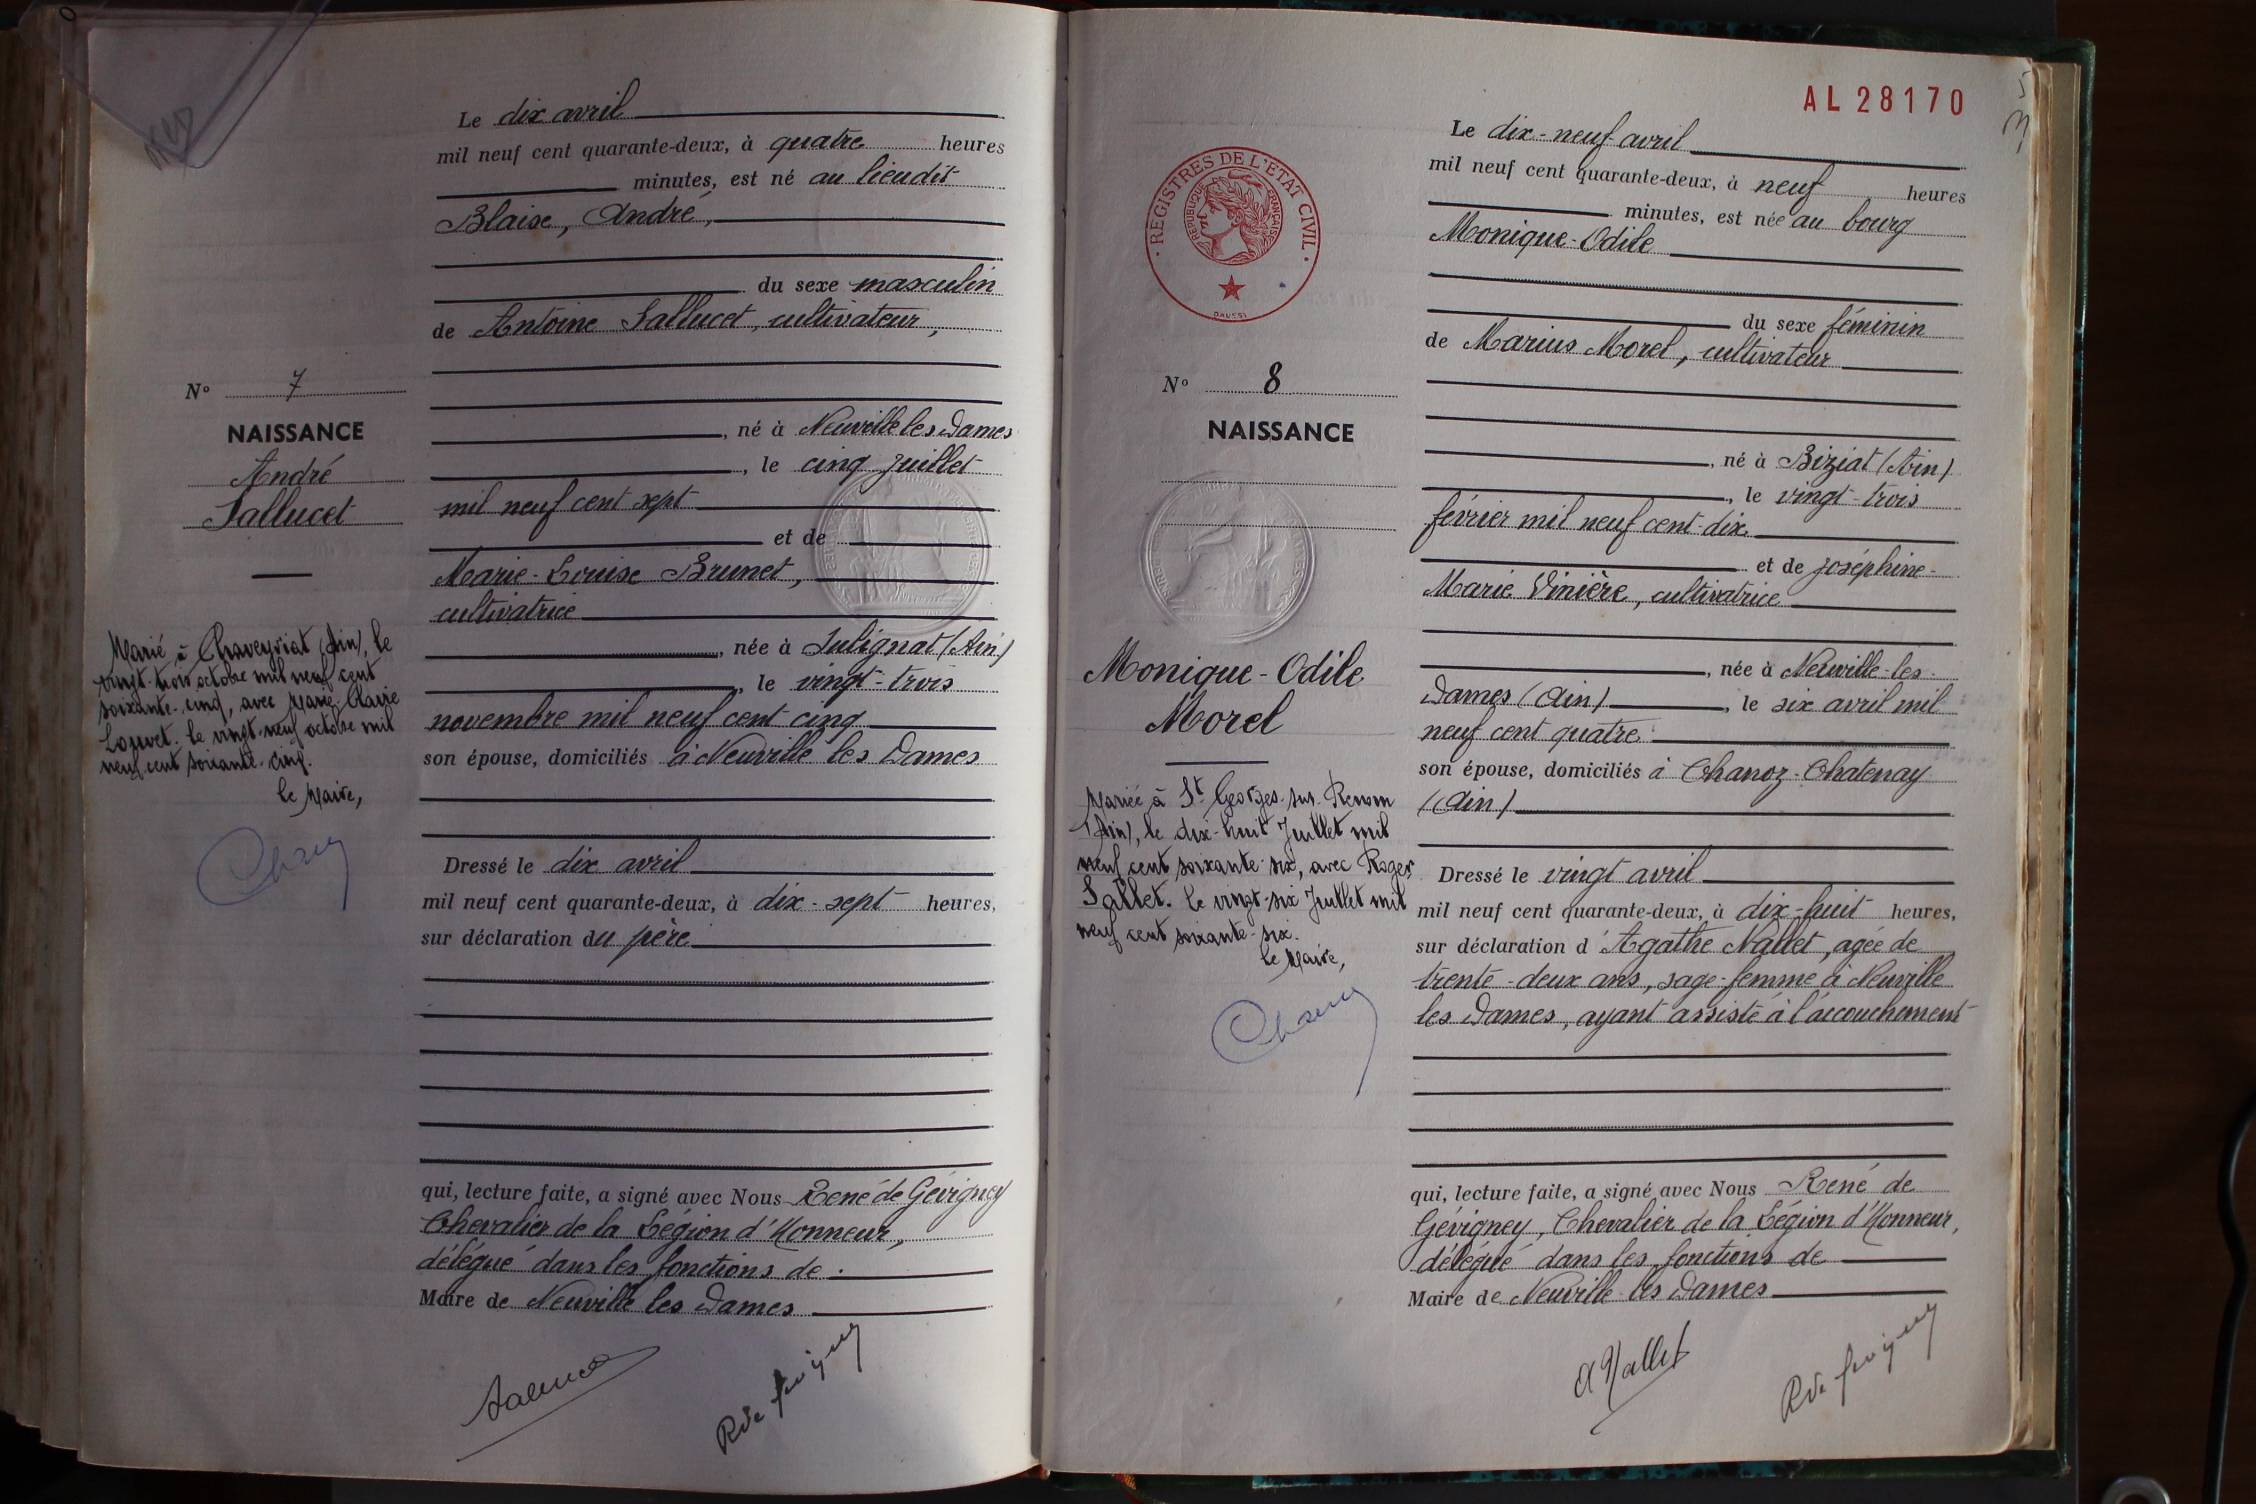 Le dix avril
mil neuf cent quarante-deux, à quatre heures
minutes, est né au lieudit
Blaise, André,
du sexe masculin
de Antoine Sallucet, cultivateur,
N° 7
NAISSANCE
André
Sallucet
, né à Neuville les Dames
, le cinq Juillet
mil neuf cent sept
et de
Marie-Louise Brunet,
cultivatrice
, née à Sulignat (Ain)
, le vingt-trois
novembre mil neuf cent cinq
son épouse, domiciliés à Neuville les Dames
Marié à Chaveyriat (Ain), le
vingt-trois octobre mil neuf cent
soixante-cinq, avec Marie Claire
Louvet. Le vingt-neuf octobre mil
neuf cent soixante-cinq.
Le Maire,
Dressé le dix avril
mil neuf cent quarante-deux, à dix-sept heures,
sur déclaration du père
qui, lecture faite, a signé avec Nous René de Gévigney
Chevalier de la Légion d'Honneur,
délégué dans les fonctions de
Maire de Neuville les Dames
AL 28170
REGISTRES DE L'ÉTAT CIVIL
RÉPUBLIQUE FRANÇAISE
DAUSSY
Le dix-neuf avril
mil neuf cent quarante-deux, à neuf heures
minutes, est née au bourg
Monique-Odile
du sexe féminin
de Marius Morel, cultivateur
N° 8
NAISSANCE
Monique-Odile
Morel
, né à Biziat (Ain)
, le vingt-trois
février mil neuf cent-dix
et de Joséphine-
Marie Vinière, cultivatrice
, née à Neuville-les-
Dames (Ain), le six avril mil
neuf cent quatre
son épouse, domiciliés à Chanoz-Chatenay
(Ain)
Mariée à St Georges-sur-Renom
(Ain), le dix-huit Juillet mil
neuf cent soixante-six, avec Roger
Sallet. Le vingt-six Juillet mil
neuf cent soixante-six.
Le Maire,
Dressé le vingt avril
mil neuf cent quarante-deux, à dix-huit heures,
sur déclaration d'Agathe Nallet, agée de
trente-deux ans, sage-femme à Neuville
les Dames, ayant assisté à l'accouchement
qui, lecture faite, a signé avec Nous René de
Gévigney, Chevalier de la Légion d'Honneur,
délégué dans les fonctions de
Maire de Neuville les Dames
A Nallet